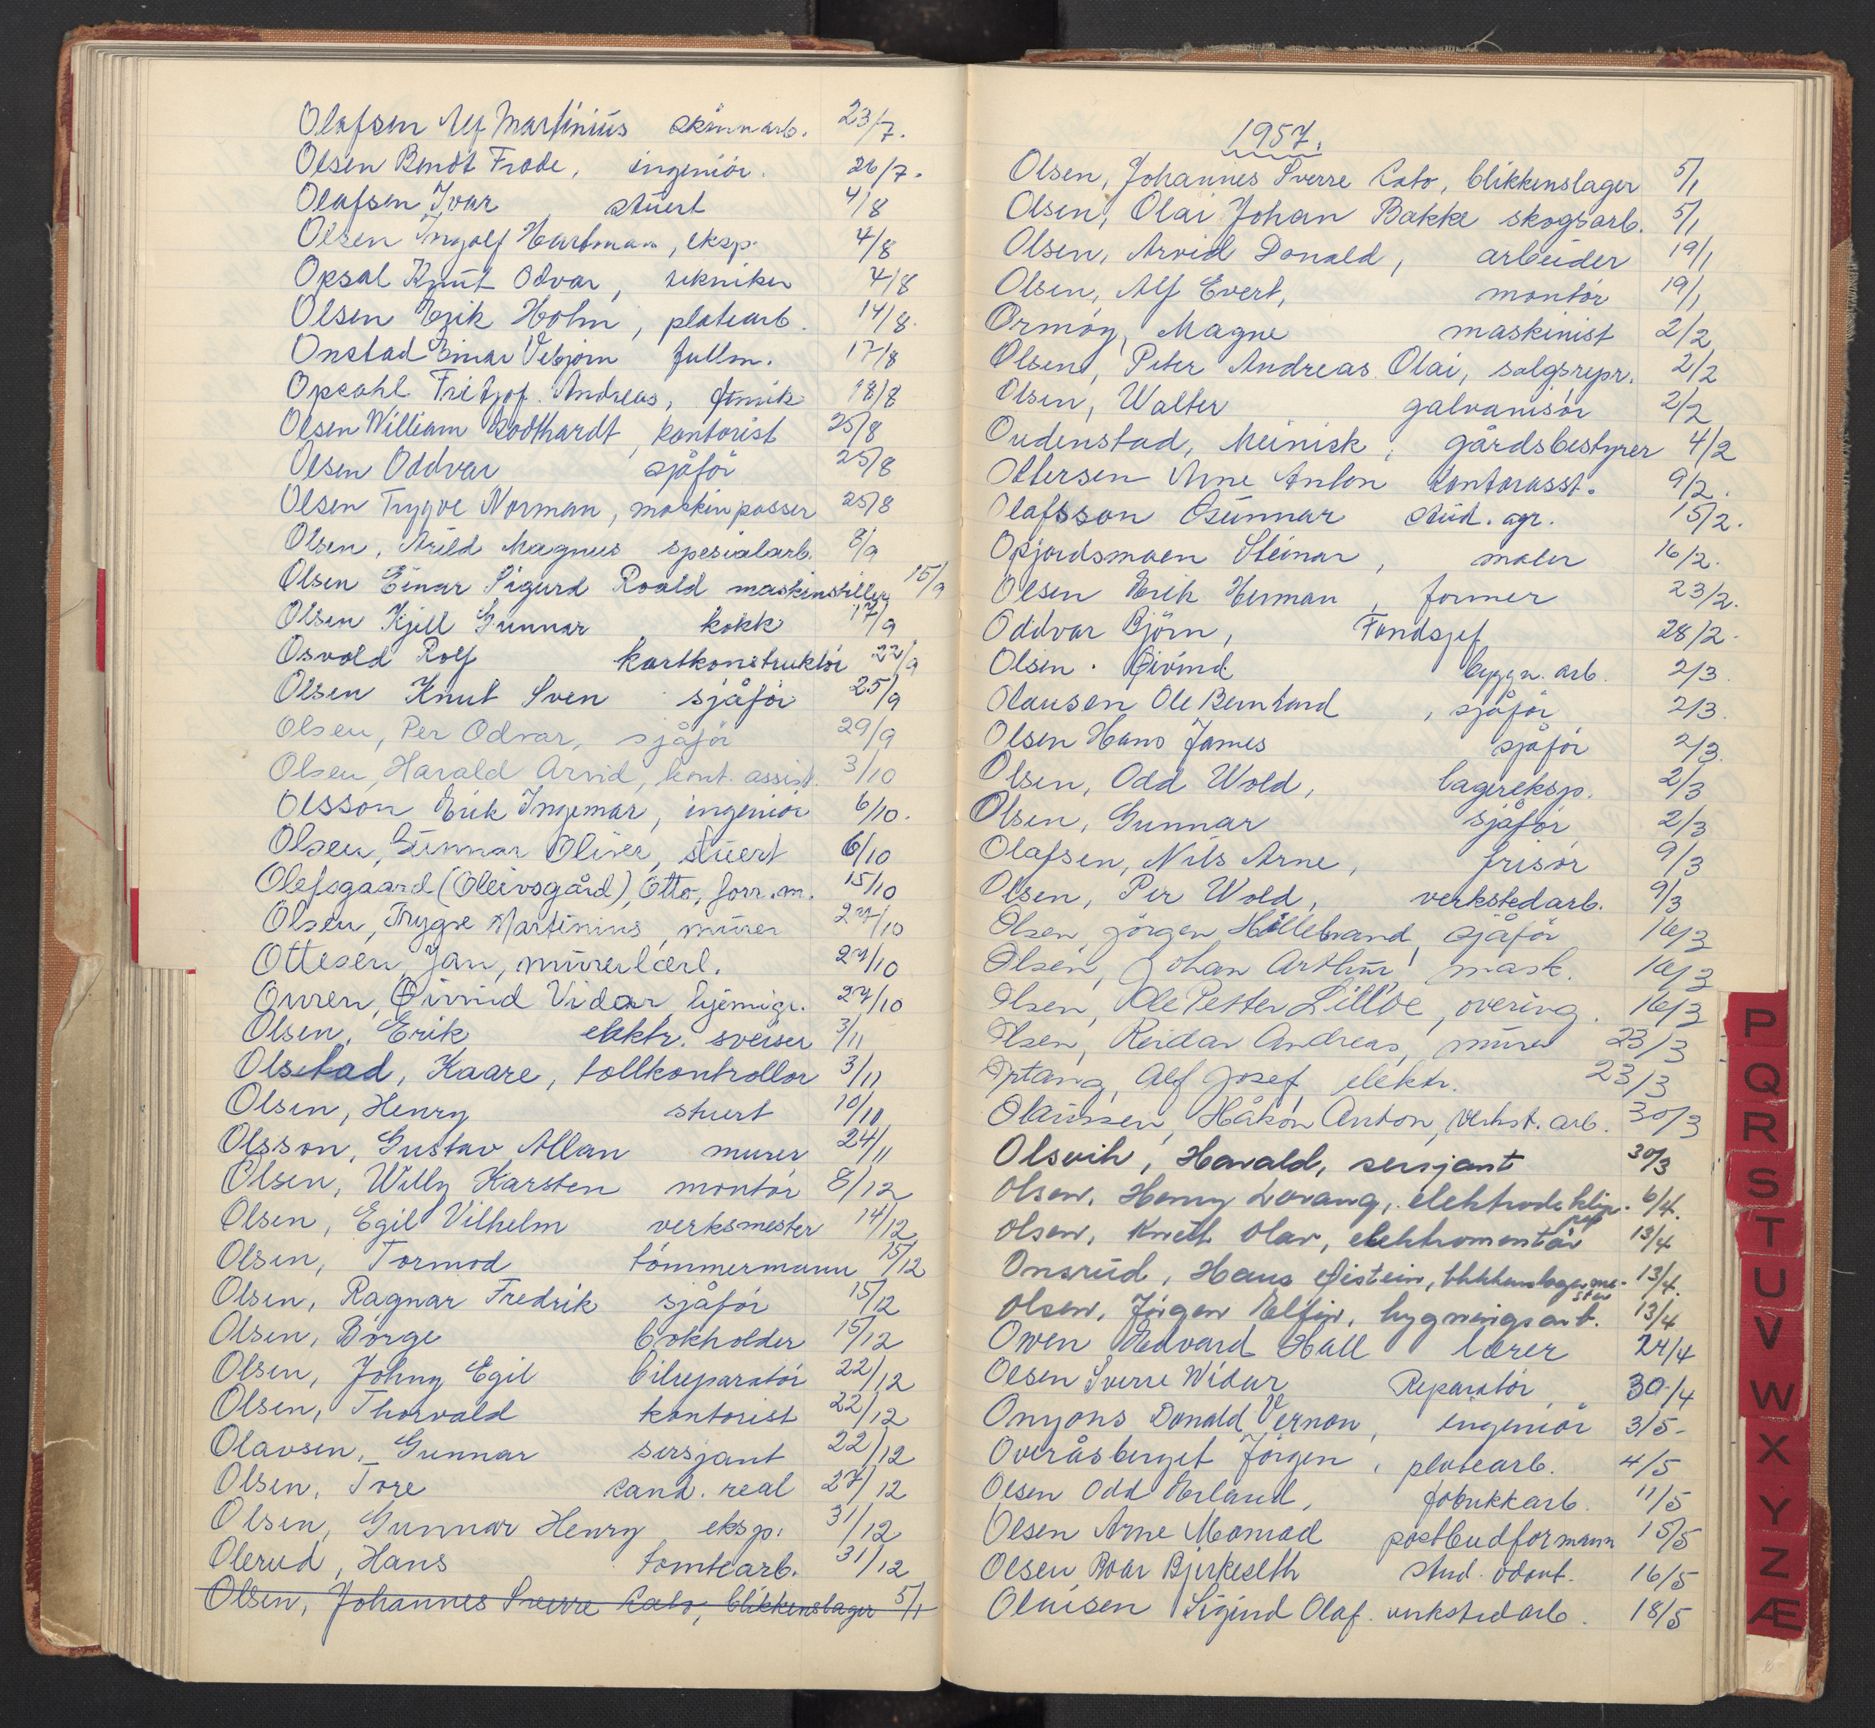 Olafsen Alf Martinius skinnarb. 23/7.
Olsen Bendt Frode, ingeniör. 26/7.
Olafsen Ivar stuert 4/8
Olsen Ingolf Hartman, eksp. 4/8
Opsal Knut Odvar, tekniker 4/8
Olsen Erik Holm, platearb. 14/8.
Onstad Einar Vebjörn fullm. 17/8
Opsahl Fritjof Andreas, 18/8
Olsen William Godthardt, kontorist 25/8
Olsen Oddvar sjåför 25/8
Olsen Trygve Norman, maskinpasser 25/8
Olsen, Arild Magnus spesialarb. 8/9
Olsen Einar Sigurd Roald maskinstiller 15/9
Olsen Kjell Gunnar kokk 17/9
Osvold Rolf kartkonstruktör 22/9
Olsen Knut Sven sjåför 25/9
Olsen, Per Odvar, sjåför 29/9
Olsen, Harald Arvid, kont. assist. 3/10
Olsson Erik Ingemar, ingeniör 6/10.
Olsen, Gunnar Oliver, stuert 6/10
Olefsgaard (Oleivsgård), Otto, forr.m. 15/10
Olsen, Trygve Martinius, murer 27/10
Ottesen, Jan, murerlærl. 27/10
Ouren, Öivind Vidar kjemigr. 27/10
Olsen, Erik elektr. sveiser 3/11
Olsstad, Kaare, tollkontrollör 3/11
Olsen, Henry stuert 10/11
Olsson, Gustav Allan murer 24/11
Olsen, Willy Karsten montör 8/12
Olsen, Egil Vilhelm verksmester 14/12
Olsen, Tormod tömmermann 15/12
Olsen, Ragnar Fredrik sjåför 15/12
Olsen, Börge bokholder 15/12
Olsen, Johny Egil bilreparatör 22/12
Olsen, Thorvald kontorist 22/12
Olavsen, Gunnar sersjant 22/12
Olsen, Tore cand. real 27/12
Olsen, Gunnar Henry eksp. 31/12
Olerud, Hans tomtearb. 31/12
Olsen, Johannes Sverre Cato, blikkenslager 5/1
1957.
Olsen, Johannes Sverre Cato, blikkenslager 5/1
Olsen, Olai Johan Bakke skogsarb. 5/1
Olsen, Arvid Donald, arbeider 19/1
Olsen, Alf Evert, montör 19/1
Ormöy, Magne maskinist 2/2
Olsen, Peter Andreas Olai, salgsrepr. 2/2
Olsen, Walter galvanisör 2/2
Oudenstad, Meinick, gårdsbestyrer 4/2
Ottersen Arne Anton kontorasst. 9/2.
Olafsson Gunnar stud. agr. 15/2.
Opjordsmoen Steinar, maler 16/2.
Olsen Erik Herman, former 23/2.
Oddvar Björn, Fondsjef 28/2.
Olsen. Öivind byggn. arb. 2/3.
Olausen Ole Berntard, sjåför 2/3.
Olsen Hans James sjåför 2/3.
Olsen, Odd Wold, lagereksp. 2/3
Olsen, Gunnar sjåför 2/3
Olafsen, Nils Arne, frisör 9/3
Olsen, Per Wold, verkstedarb. 9/3
Olsen, Jörgen Hillebrand, sjåför 16/3
Olsen, Johan Arthur, mask. 16/3
Olsen, Ole Petter Lilloe, overing. 16/3
Olsen, Reidar Andreas, murer 23/3
Optang, Alf Josef, elektr. 23/3
Olaussen, Håkon Anton, verkst. arb. 30/3
Olsvik, Harald, sersjant 30/3
Olsen, Henry Lorang, elektrodeklipper 6/4.
Olsen, Knut Olav, elektromontör 13/4
Onsrud, Hans Öistein, blikkenslagermester 13/4.
Olsen, Jörgen Elfin, bygningsarb. 13/4
Owen Edvard Hall lærer 24/4
Olsen Sverre Widar Reparatör 30/4
Onyons Donald Vernon, ingeniör 3/5-
Overåsberget Jörgen, platearb. 4/5
Olsen Odd Erland, fabrikkarb. 11/5
Olsen Arne Monrad postbudformann 15/5
Olsen Roar Bjerkeseth stud. odont. 16/5
Olausen Sigurd Olaf. verkstedarb. 18/5
P
Q
R
S
T
U
V
W
X
Y
Z
Æ